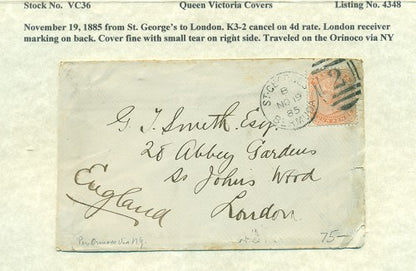 Stock No. VC36 Queen Victoria Covers Listing No. 4348
November 19, 1885 from St. George's to London. K3-2 cancel on 4d rate. London receiver
marking on back. Cover fine with small tear on right side. Traveled on the Orinoco via NY
B
NO 19
85
BERMUDA
2
G. T. Smith. Esq.
28 Abbey Gardens
St Johns Wood
London
England
Per Orinoco Via N.Y.
75-